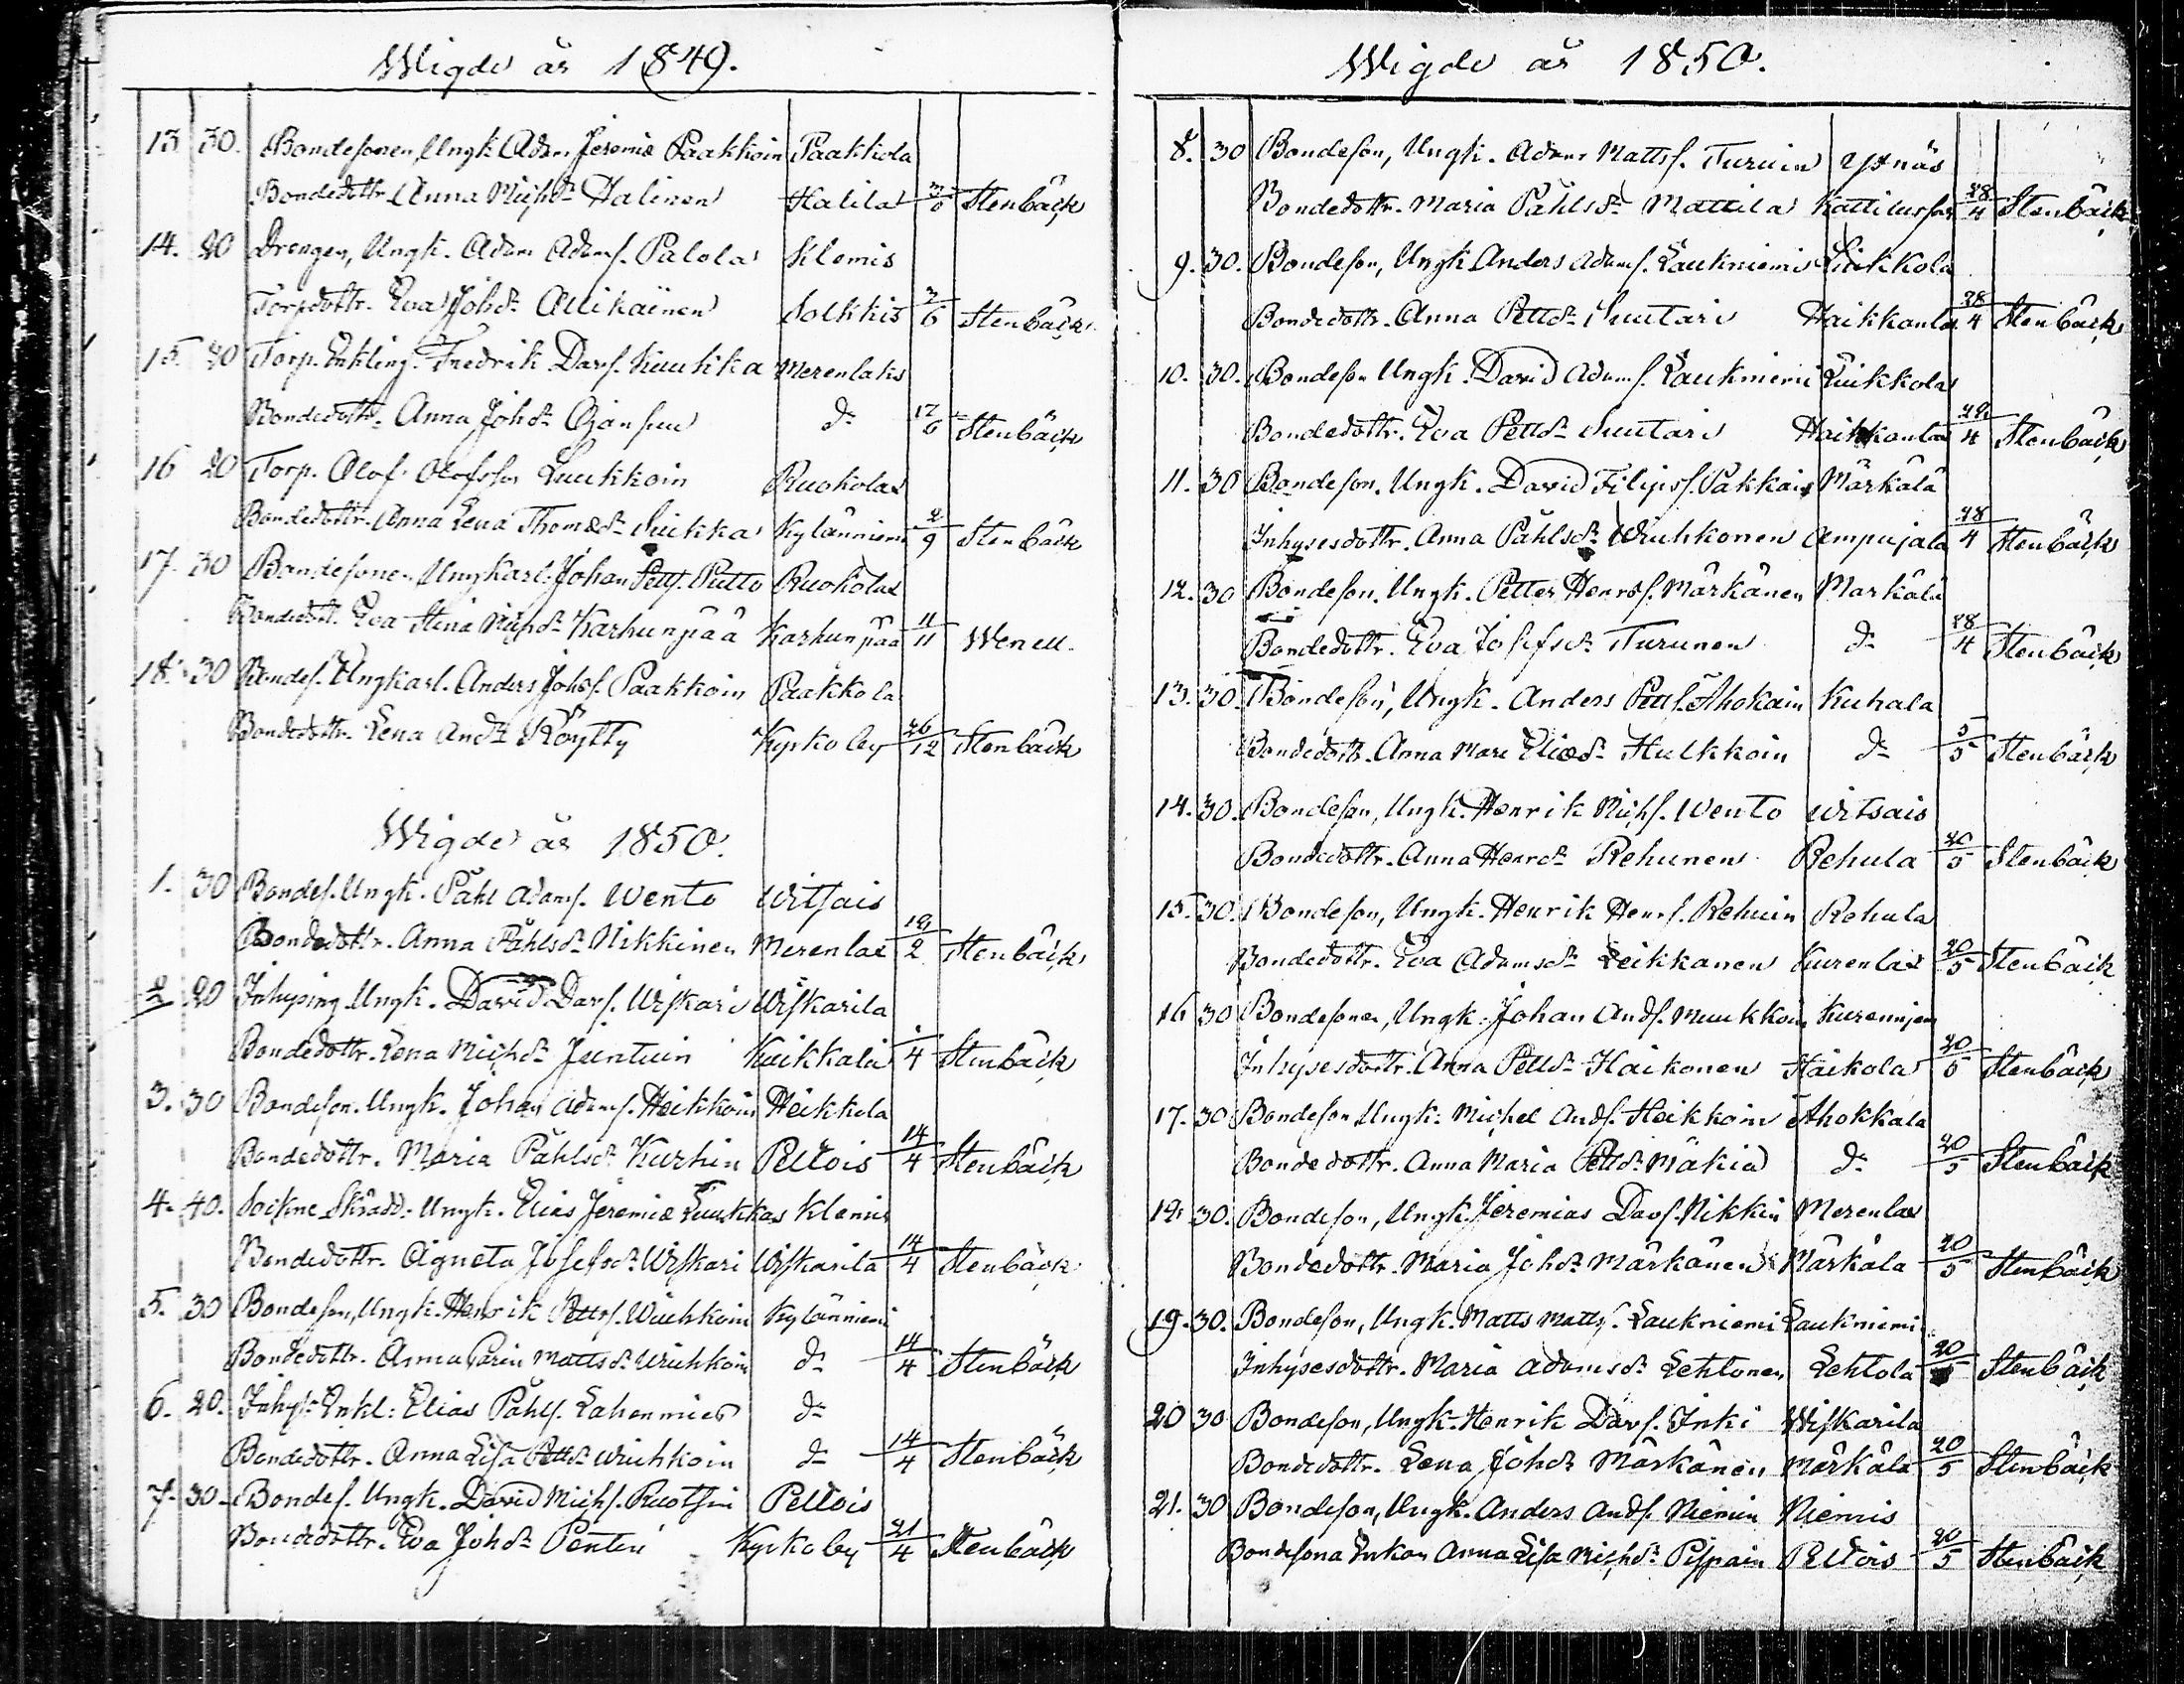 Wigde år 1849.
13 30. Bondesonen, Ungk. Adam Jeremiæ Paakkoin Paakkola
Bondedottr. Anna Michsdr Halinen Halila 3/6 Stenbäck
14. 20 Drengen, Ungk. Adam Adamss. Palola Klemis
Torpdottr. Eva Johsdr Ollikäinen Solkkis 3/6 Stenbäck
15. 20 Torp. Enkling. Fredrik Davs. Kuukka Merenlaks
Bondedottr. Anna Johsdr do 17/6 Stenbäck
16 20 Torp. Olof Olofsson Luukkoin Ruokolax
Bondedottr. Anna Lena Thomædr Sukka Kylänniemi 2/9 Stenbäck
17. 30 Bondesonen, Ungkarl. Johan Petts. Putto Ruokolax
Bondedott. Eva Stina Michsdr Karhunpää Karhunpää 11/11 Wenell.
18. 30 Bondes. Ungkarl. Anders Johss. Paakkoin Paakkola
Bondedottr. Lena Andsdr Köytty Kyrkoby 26/12 Stenbäck
Wigde år 1850.
1. 30 Bondes. Ungk. Påhl Adams. Wento Witsais
Bondedottr. Anna Påhlsdr Nikkinen Merenlax 19/2 Stenbäck
2 20 Inhysing Ungk. David Davs. Wiskari Wiskarila
Bondedottr. Lena Michsdr Juntuin Kuikkala 1/4 Stenbäck
3. 30 Bondeson. Ungk. Johan Adams. Heikkoin Heikkila
Bondedottr. Maria Påhlsdr Kurhin Peltois 14/4 Stenbäck
4. 40. Sockne Skrädd. Ungk. Elias Jeremiæ Luukkas Klemis
Bondedottr. Agneta Josefsdr Wiskari Wiskarila 14/4 Stenbäck
5. 30 Bondeson, Ungk. Henrik Petts. Wiuhkoin Kylänniemi
Bondedottr. Anna Carin Mattsdr Wiuhkoin do 14/4 Stenbäck
6. 20. Inhys. Enkl: Elias Påhls. Lahenmies do
Bondedottr. Anna Lisa Pettsdr Wiuhkoin do 14/4 Stenbäck
7. 30 Bondes. Ungk. David Michs. Ruotsin Peltois
Bondedottr. Eva Johsdr Penten Kyrkoby 21/4 Stenbäck
Wigde år 1850.
8. 30 Bondeson, Ungk. Adam Mattss. Turuin Yxnäs
Bondedottr. Maria Påhlsdr Mattila 28/4 Stenbäck
9. 30. Bondeson, Ungk. Anders Adams. Laukniemi Luukkola
Bondedottr. Anna Pettsdr Suutari Haikkanlax 28/4 Stenbäck
10. 30. Bondeson Ungk. David Adams. Laukniemi Luukkola
Bondedottr. Eva Pettsdr Suutari Haikkanlax 28/4 Stenbäck
11. 30 Bondeson. Ungk. David Filips. Pakkain Märkälä
Inhysesdottr. Anna Påhlsdr Wiuhkonen Ampujala 28/4 Stenbäck
12. 30 Bondeson. Ungk. Petter Henrs. Märkänen Märkälä
Bondedottr. Eva Josefsdr Turunen do 28/4 Stenbäck
13. 30. Bondeson, Ungk. Anders Petts. Ahokain Kuhala
Bondedottr. Anna Mari Eliædr Hulkkoin do 5/5 Stenbäck
14. 30. Bondeson, Ungk. Henrik Michs. Wento Witsais
Bondedottr. Anna Henrsdr Rehunen Rehula 20/5 Stenbäck
15. 30. Bondeson, Ungk. Henrik Henrs. Rehuin Rehula
Bondedottr. Eva Adamsdr Leikkanen Kurenlax 20/5 Stenbäck
16 30 Bondesonen, Ungk. Johan Ands. Muukkoin
Inhysesdottr. Anna Pettsdr Haikonen Haikola 20/5 Stenbäck
17. 30 Bondeson Ungk. Michel Ands. Heikkoin Ahokkala
Bondedottr. Anna Maria Pettsdr Mäkiä do 20/5 Stenbäck
18. 30. Bondeson, Ungk. Jeremias Davs. Nikkin Merenlax
Bondedottr. Maria Johsdr Märkänen Märkälä 20/5 Stenbäck
19. 30. Bondeson, Ungk. Matts Matts. Laukniemi Laukniemi
Inhysesdottr. Maria Adamsdr Lehtonen Lehtola 20/5 Stenbäck
20 30 Bondeson, Ungk. Henrik Davs. Inki Wiskarila
Bondedottr. Lena Johsdr Märkänen Märkälä 20/5 Stenbäck
21. 30 Bondeson, Ungk. Anders Ands. Niemin Niemis
Bondesona Enkan Anna Lisa Michsdr Pispain Peltois 20/5 Stenbäck